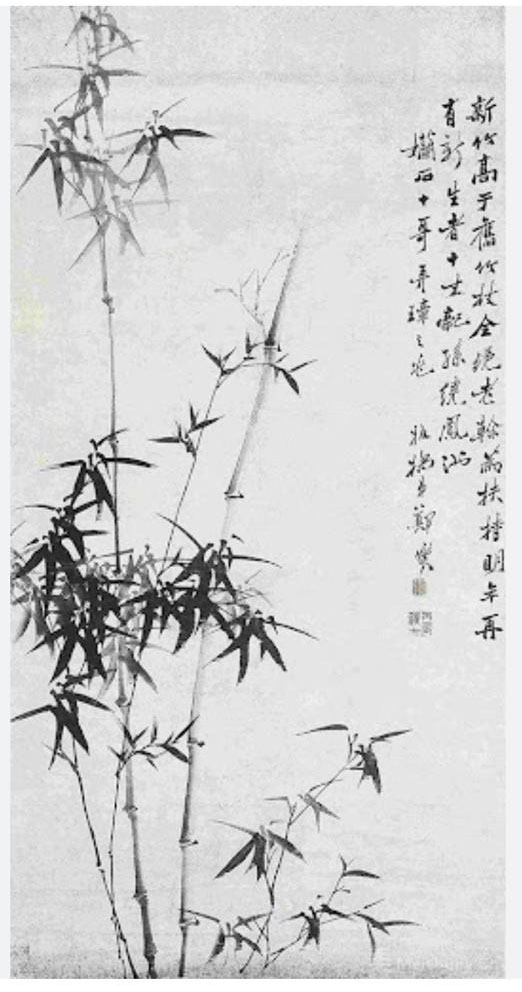 新竹高于舊竹枝全憑老幹為扶持明年再
有新生者十丈龍孫繞鳳池
石十哥弄璋之兆 板橋弟鄭燮